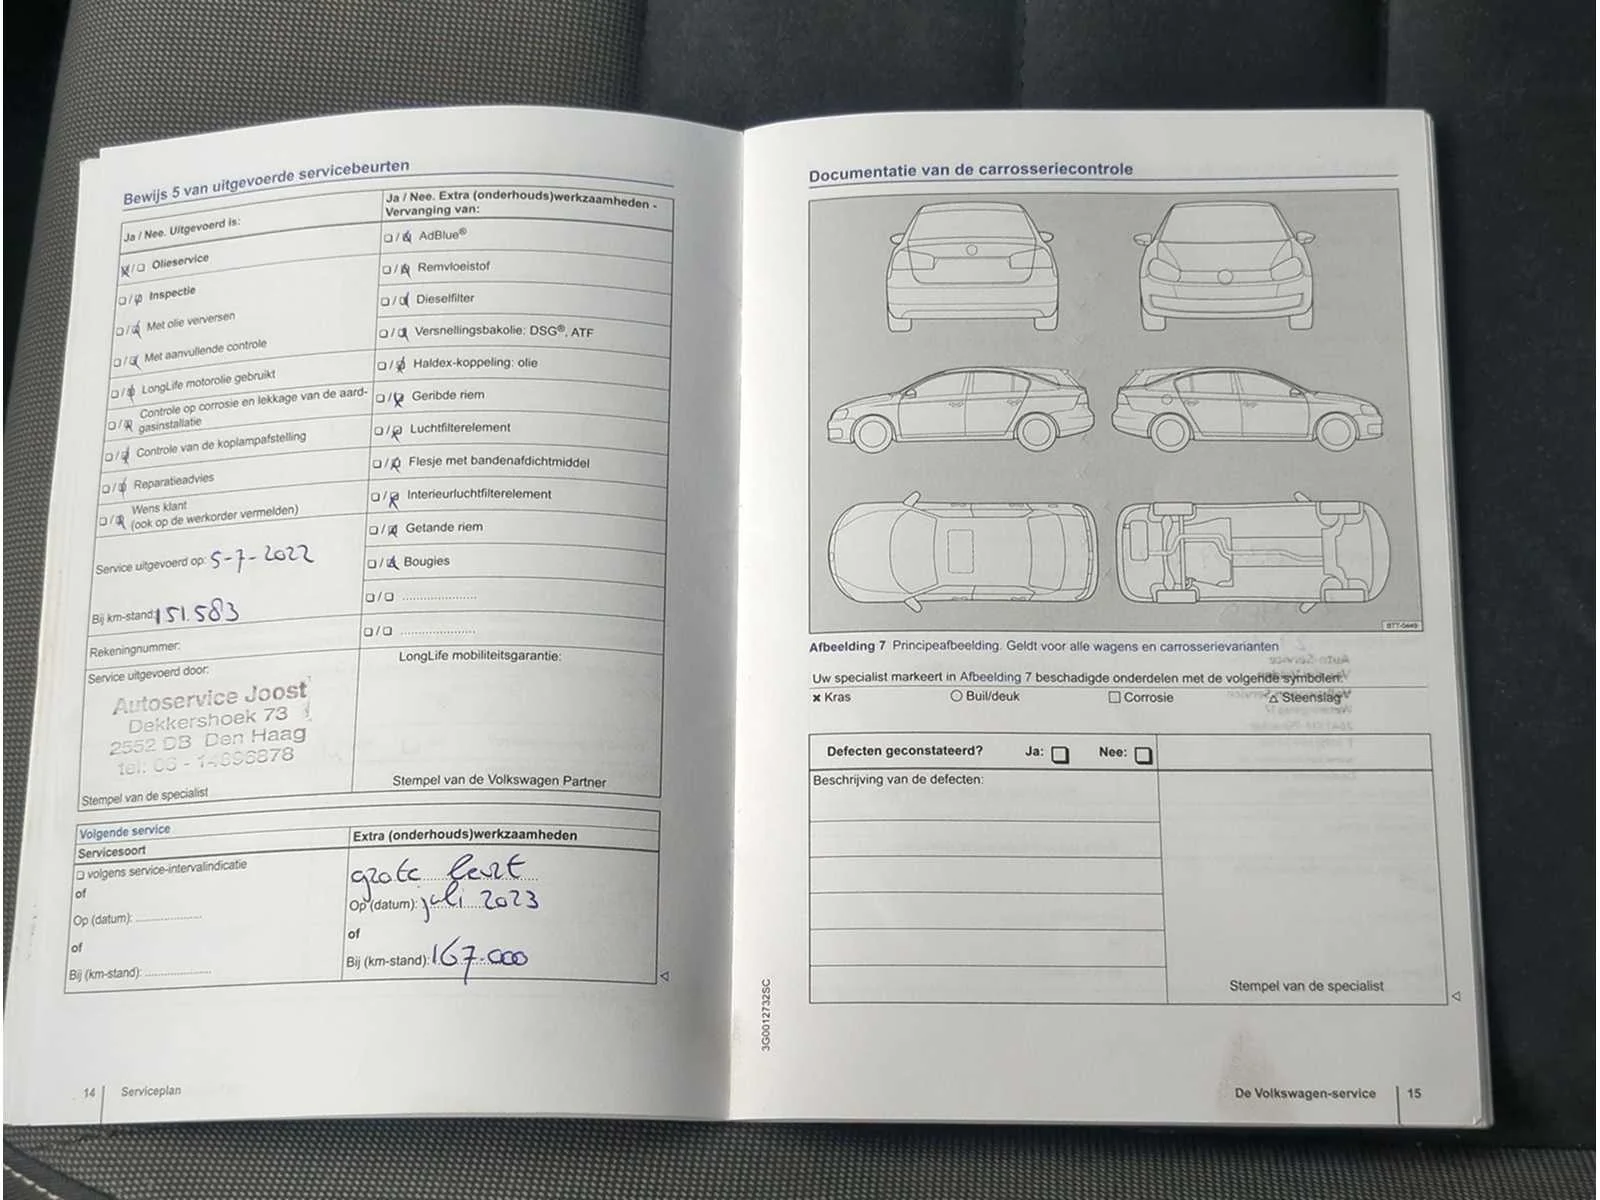 Bewijs 5 van uitgevoerde servicebeurten
Ja / Nee. Uitgevoerd is:
Olieservice
Inspectie
Met olie verversen
Met aanvullende controle
LongLife motorolie gebruikt
Controle op corrosie en lekkage van de aard-
gasinstallatie
Controle van de koplampafstelling
Reparatieadvies
Wens klant
(ook op de werkorder vermelden)
Service uitgevoerd op: 5-7-2022
Bij km-stand: 151.583
Rekeningnummer:
Service uitgevoerd door:
Autoservice Joost
Dekkershoek 73
2552 DB Den Haag
tel: 06 -
Stempel van de specialist
Ja / Nee. Extra (onderhouds)werkzaamheden -
Vervanging van:
AdBlue®
Remvloeistof
Dieselfilter
Versnellingsbakolie: DSG®, ATF
Haldex-koppeling: olie
Geribde riem
Luchtfilterelement
Flesje met bandenafdichtmiddel
Interieurluchtfilterelement
Getande riem
Bougies
LongLife mobiliteitsgarantie:
Stempel van de Volkswagen Partner
Volgende service
Servicesoort
volgens service-intervalindicatie
of
Op (datum):
of
Bij (km-stand):
Extra (onderhouds)werkzaamheden
grote
Op (datum): juli 2023
of
Bij (km-stand): 167.000
14 Serviceplan
Documentatie van de carrosseriecontrole
Afbeelding 7 Principeafbeelding. Geldt voor alle wagens en carrosserievarianten
Uw specialist markeert in Afbeelding 7 beschadigde onderdelen met de volgende symbolen:
Kras Buil/deuk Corrosie Steenslag
Defecten geconstateerd? Ja: Nee:
Beschrijving van de defecten:
Stempel van de specialist
3G0012732SC
De Volkswagen-service 15